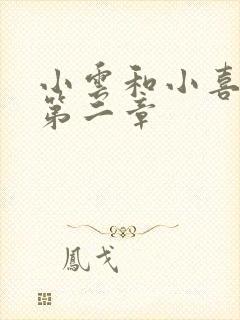 小雲和小喜
第二章
鳳戈